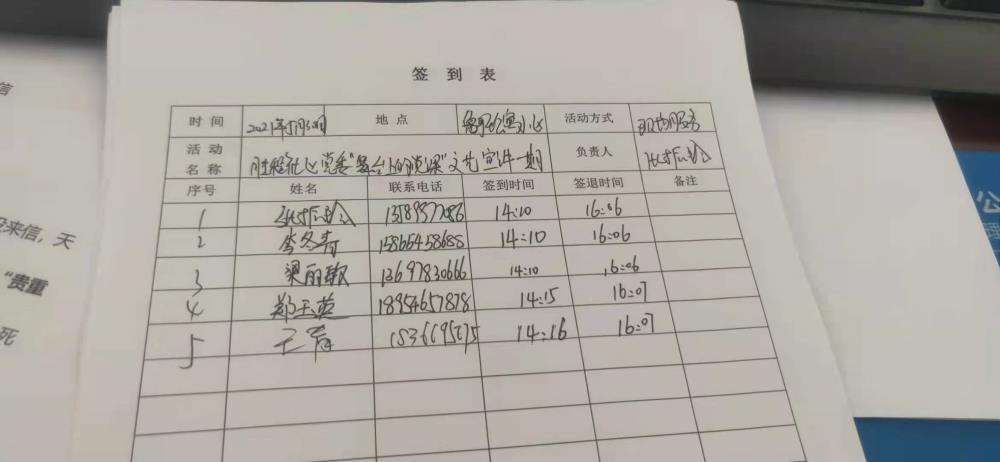 信
签到表
时间 2021年5月30日 地点 活动方式 现场服务
活动名称 社区党委"舞台上的党课"文艺宣传一期 负责人
序号 姓名 联系电话 签到时间 签退时间 备注
1 14:10 16:06
2 李冬青 15865458688 14:10 16:06
3 梁丽敏 13697830666 14:10 16:06
4 郑玉英 18954657878 14:15 16:07
5 14:16 16:07
来信,天
"贵重
死
公
理